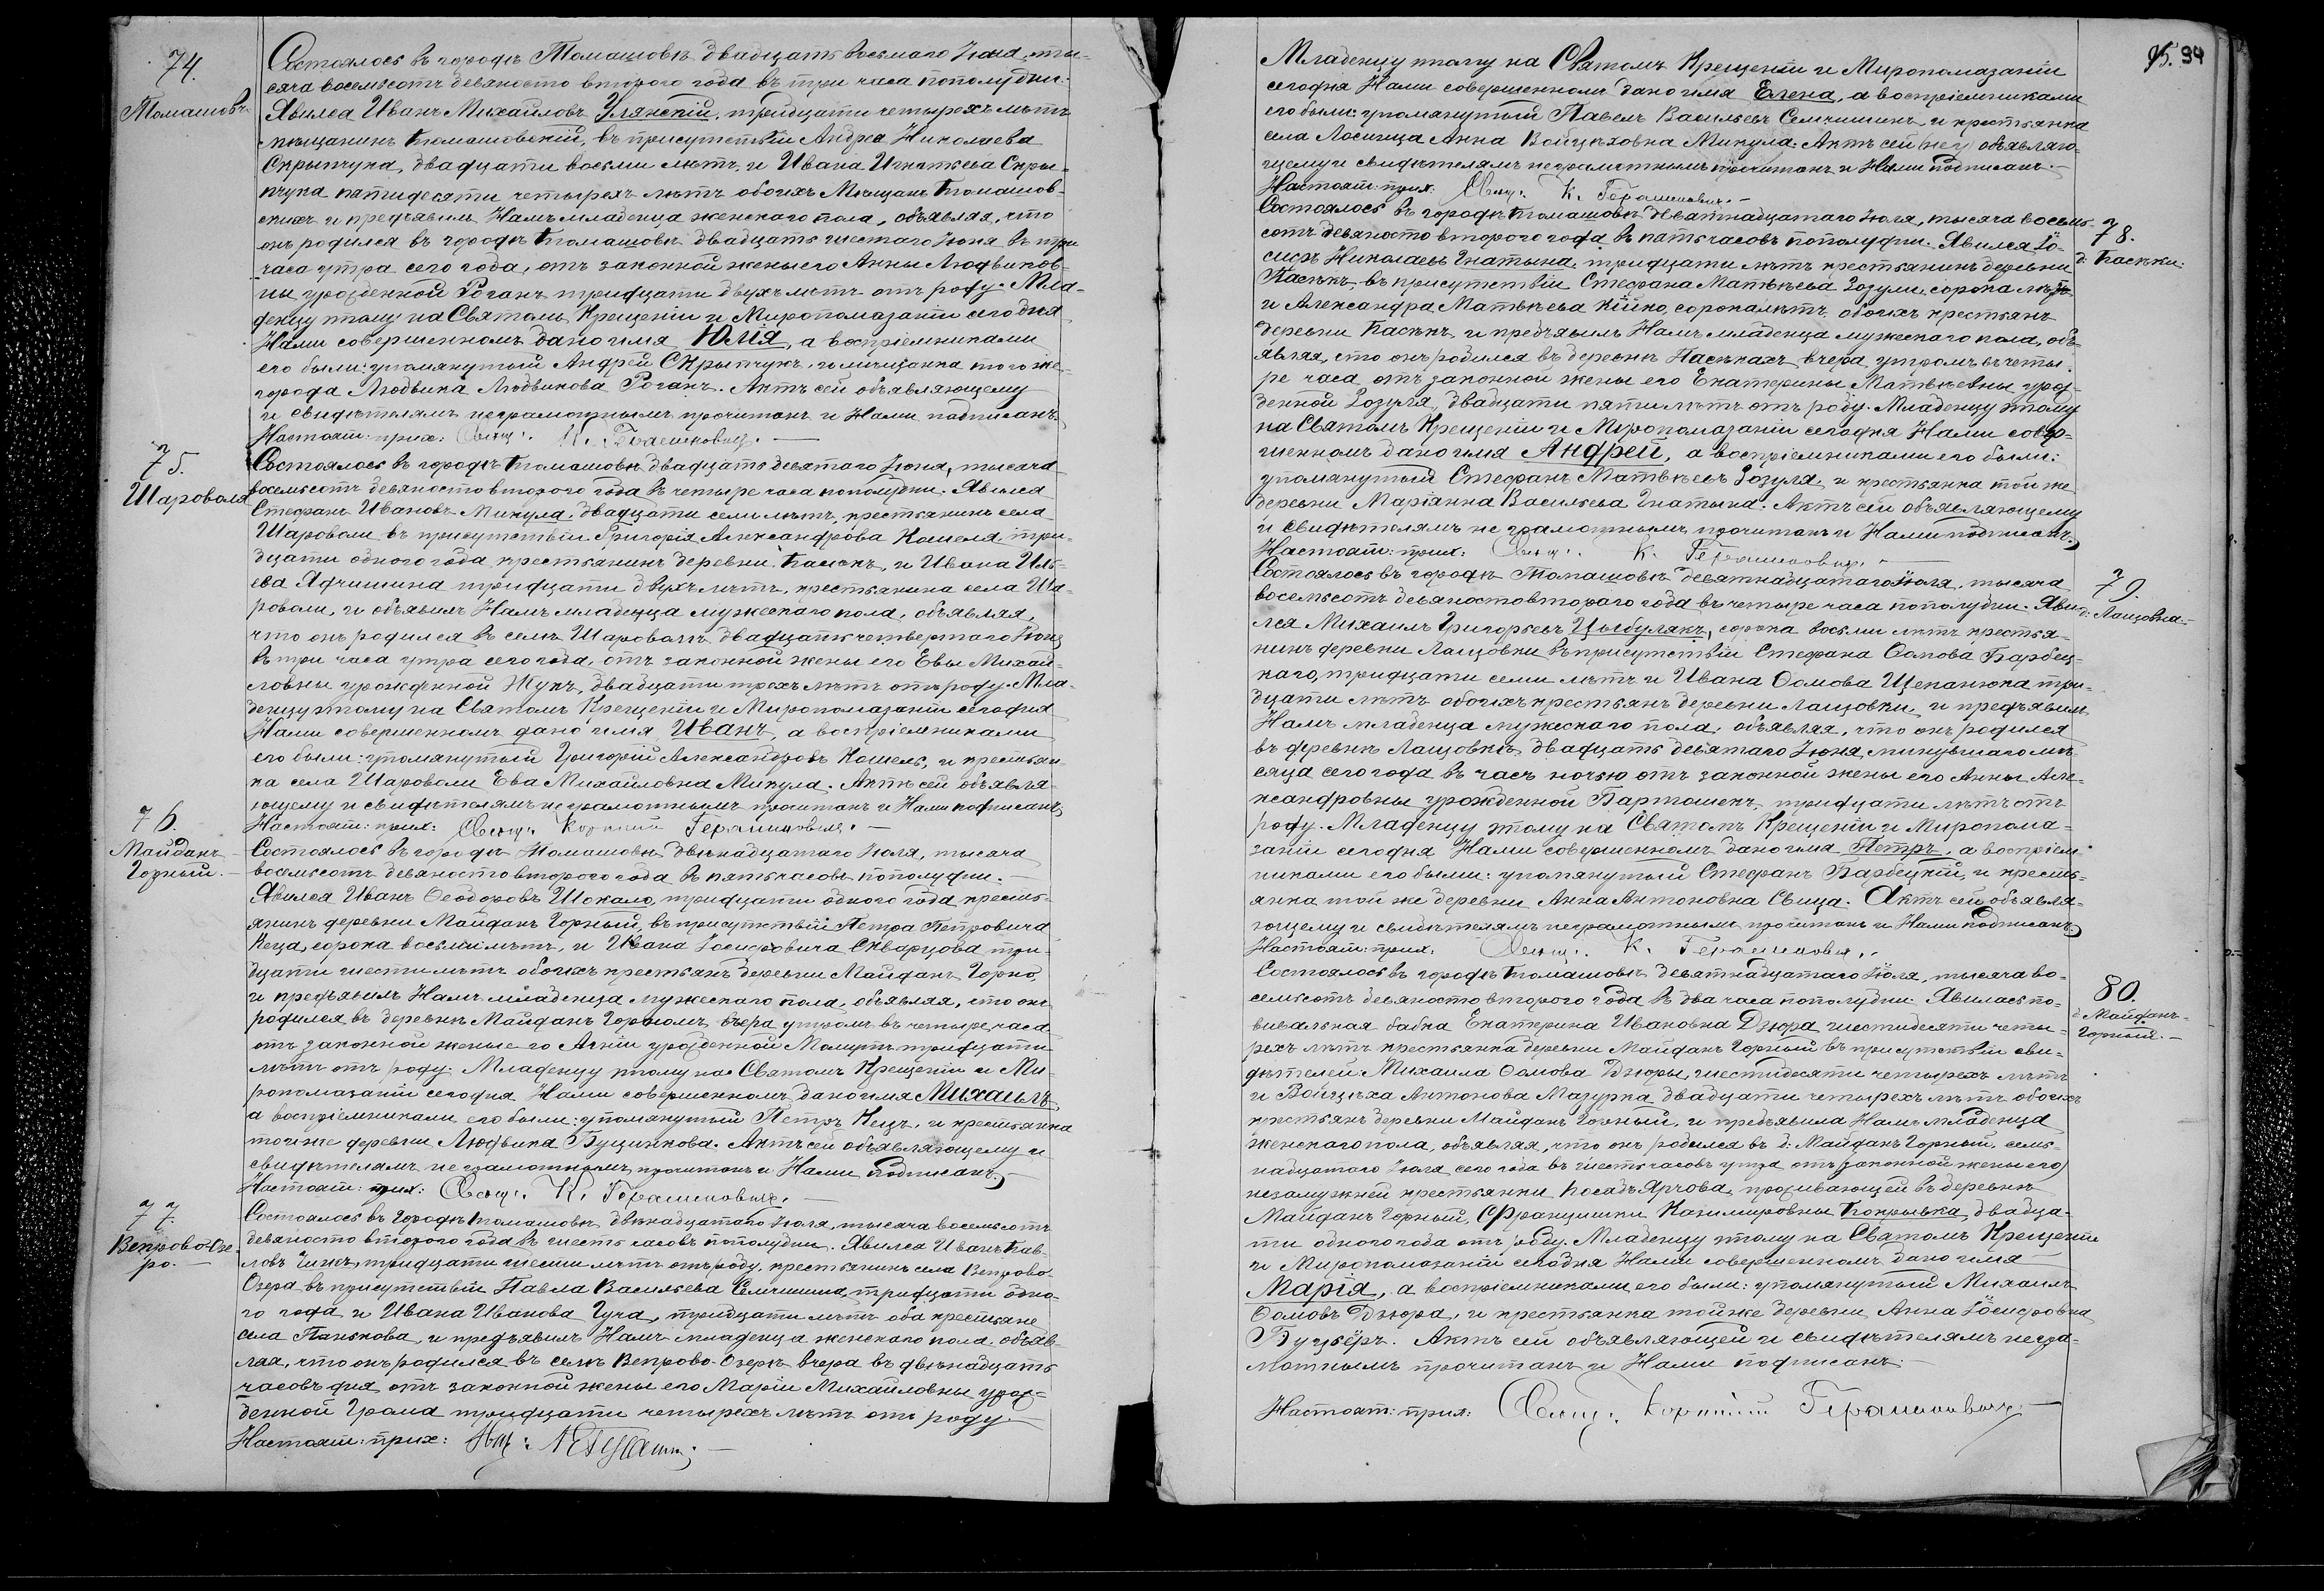 74.
Томашовъ
Состоялось въ городѣ Томашовѣ двадцать восьмаго Іюня, ты-
сяча восемьсотъ девяносто второго года въ три часа пополудни.
Явился Иванъ Михайловъ Улянскій, тридцати четырехъ лѣтъ
мѣщанинъ Томашовскій, въ присутствіи Андрея Николаева
Скрыпчука, двадцати восьми лѣтъ, и Ивана Игнатьева Скры-
пчука пятидесяти четырехъ лѣтъ обоихъ Мѣщанъ Томашов-
скихъ и предъявилъ Намъ младенца женскаго пола, объявляя, что
онъ родился въ городѣ Томашовѣ двадцать шестаго Іюня въ три
часа утра сего года, отъ законной жены его Анны Людвиков-
ны урожденной Роганъ тридцати двухъ лѣтъ отъ роду. Мла-
денцу этому на Святомъ Крещеніи и Миропомазаніи сего дня
Нами совершенномъ дано имя Юлія, а воспріемниками
его были: упомянутый Андрей Скрыпчукъ, и мѣщанка того же
города Людвика Людвикова Роганъ. Актъ сей объявляющему
и свидѣтелямъ неграмотнымъ прочитанъ и Нами подписанъ.
Настоят: прих: Свящ: К. Герашковичъ.
75.
Шароволя
Состоялось въ городѣ Томашовѣ двадцать девятаго Іюня, тысяча
восемьсотъ девяносто второго года въ четыре часа пополудни. Явился
Стефанъ Ивановъ Микула, двадцати семи лѣтъ, крестьянинъ села
Шароволи въ присутствіи Григорія Александрова Кошеля, три-
дцати одного года крестьянинъ деревни Пасѣкъ, и Ивана Иль-
ева Ядчишина тридцати двухъ лѣтъ, крестьянина села Ша-
роволи, и объявилъ Намъ младенца мужескаго пола, объявляя,
что онъ родился въ селѣ Шароволѣ двадцать четвертаго Іюня
въ три часа утра сего года, отъ законной жены его Евы Михай-
ловны урожденной Жукъ, двадцати трехъ лѣтъ отъ роду. Мла-
денцу этому на Святомъ Крещеніи и Миропомазаніи сегодня
Нами совершенномъ дано имя Иванъ, а воспріемниками
его были: упомянутый Григорій Александровъ Кошель, и крестьян-
ка села Шароволи Ева Михайловна Микула. Актъ сей объявля-
ющему и свидѣтелямъ неграмотнымъ прочитанъ и Нами подписанъ.
Настоят: прих: Свящ: Корнилій Герашковичъ.
76.
Майданъ
Горный.
Состоялось въ городѣ Томашовѣ двѣнадцатаго Іюля, тысяча
восемьсотъ девяносто второго года въ пять часовъ пополудни.
Явился Иванъ Ѳеодоровъ Шокало, тридцати одного года, кресть-
янинъ деревни Майданъ Горный, въ присутствіи Петра Петровича
Кеца, сорока восьми лѣтъ, и Ивана Іосифовича Скварцова три-
дцати шести лѣтъ обоихъ крестьянъ деревни Майданъ Горно,
и предъявилъ Намъ младенца мужескаго пола, объявляя, что онъ
родился въ деревнѣ Майданъ Горномъ вчера утромъ въ четыре часа
отъ законной жены его Агніи урожденной тридцати
лѣтъ отъ роду. Младенцу этому на Святомъ Крещеніи и Ми-
ропомазаніи сегодня Нами совершенномъ дано имя Михаилъ,
а воспріемниками его были: упомянутый Петръ Кецъ, и крестьянка
той же деревни Людвика Буцинкова. Актъ сей объявляющему и
свидѣтелямъ неграмотнымъ прочитанъ и Нами подписанъ.
Настоят: прих: Свящ: К. Герашковичъ.
77.
Вепрово-Озе-
ро.
Состоялось въ городѣ Томашовѣ двѣнадцатаго Іюля, тысяча восемьсотъ
девяносто второго года въ шесть часовъ пополудни. Явился Иванъ Пав-
ловъ тридцати лѣтъ отъ роду, крестьянинъ села Вепрово-
Озера въ присутствіи Павла Васильева Семчишина, тридцати одно-
го года и Ивана Иванова Гуча, тридцати лѣтъ оба крестьяне
села Панькова, и предъявилъ Намъ младенца женскаго пола, объяв-
ляя, что онъ родился въ селѣ Вепрово-Озерѣ вчера въ двѣнадцать
часовъ дня отъ законной жены его Маріи Михайловны урож-
денной Грома тридцати четырехъ лѣтъ отъ роду.
Настоят: прих:
94
Младенцу этому на Святомъ Крещеніи и Миропомазаніи
сегодня Нами совершенномъ дано имя Елена, а воспріемниками
его были: упомянутый Павелъ Васильевъ Семчишинъ и крестьянка
села Лосинца Анна Войцѣховна Микула. Актъ сей объявляю-
щему и свидѣтелямъ неграмотнымъ прочитанъ и Нами подписанъ.
Настоят: прих: Свящ: К. Герашковичъ.
78.
д: Пасѣки.
Состоялось въ городѣ Томашовѣ девятнадцатаго Іюля, тысяча восемь-
сотъ девяносто второго года въ пять часовъ пополудни. Явился Іо-
сифъ Николаевъ Гнатына, тридцати лѣтъ крестьянинъ деревни
Пасѣкъ, въ присутствіи Стефана Матвѣева Зозули, сорока лѣтъ
и Александра Матвѣева Кійко, сорока лѣтъ обоихъ крестьянъ
деревни Пасѣкъ, и предъявилъ Намъ младенца мужескаго пола, объ-
являя, что онъ родился въ деревнѣ Пасѣкахъ вчера утромъ въ четы-
ре часа отъ законной жены его Екатерины Матвѣевны урож-
денной Зозуля, двадцати пяти лѣтъ отъ роду. Младенцу этому
на Святомъ Крещеніи и Миропомазаніи сегодня Нами совер-
шенномъ дано имя Андрей, а воспріемниками его были:
упомянутый Стефанъ Матвѣевъ Зозуля, и крестьянка той же
деревни Маріанна Васильева Гнатына. Актъ сей объявляющему
и свидѣтелямъ не грамотнымъ прочитанъ и Нами подписанъ.
Настоят: прих: Свящ: К. Герашковичъ.
79.
д: Лащовка.
Состоялось въ городѣ Томашовѣ девятнадцатаго Іюля, тысяча
восемьсотъ девяносто второго года въ четыре часа пополудни. Яви-
лся Михаилъ Григорьевъ Цыбулякъ, сорока восьми лѣтъ крестья-
нинъ деревни Лащовки въ присутствіи Стефана Ѳомова Барбец-
каго, тридцати семи лѣтъ и Ивана Ѳомова Щепанюка три-
дцати лѣтъ обоихъ крестьянъ деревни Лащовки, и предъявилъ
Намъ младенца мужескаго пола, объявляя, что онъ родился
въ деревнѣ Лащовкѣ двадцать девятаго Іюня, минувшаго мѣ-
сяца сего года въ часъ ночью отъ законной жены его Анны Але-
ксандровны урожденной Бартошекъ, тридцати лѣтъ отъ
роду. Младенцу этому на Святомъ Крещеніи и Миропома-
заніи сегодня Нами совершенномъ дано имя Петръ, а воспріем-
никами его были: упомянутый Стефанъ Барбецкій, и кресть-
янка той же деревни Анна Антоновна Свища. Актъ сей объявля-
ющему и свидѣтелямъ неграмотнымъ прочитанъ и Нами подписанъ.
Настоят: прих: Свящ: К. Герашковичъ.
80.
д: Майданъ-
Горный.
Состоялось въ городѣ Томашовѣ девятнадцатаго Іюля, тысяча во-
семьсотъ девяносто второго года въ два часа пополудни. Явилась по-
вивальная бабка Екатерина Ивановна Дзюра шестидесяти четы-
рехъ лѣтъ крестьянка деревни Майданъ Горный въ присутствіи сви-
дѣтелей: Михаила Ѳомова Дзюры, шестидесяти четырехъ лѣтъ
и Войцѣха Антонова Мазурка, двадцати четырехъ лѣтъ обоихъ
крестьянъ деревни Майданъ Горный, и предъявила Намъ младенца
женскаго пола, объявляя, что онъ родился въ д: Майданъ Горный, семь-
надцатаго Іюля сего года въ шесть часовъ утра отъ (законной жены его)
незамужней крестьянки посада Ярчова, проживающей въ деревнѣ
Майданъ Горный, Францишки Казимировны Покрывка, двадца-
ти одного года отъ роду. Младенцу этому на Святомъ Крещеніи
и Миропомазаніи сегодня Нами совершенномъ дано имя
Марія, а воспріемниками его были: упомянутый Михаилъ
Ѳомовъ Дзюра, и крестьянка той же деревни Анна Іосифовна
Буцьёръ. Актъ сей объявляющей и свидѣтелямъ негра-
мотнымъ прочитанъ и Нами подписанъ.
Настоят: прих: Свящ: Корнилій Герашковичъ.